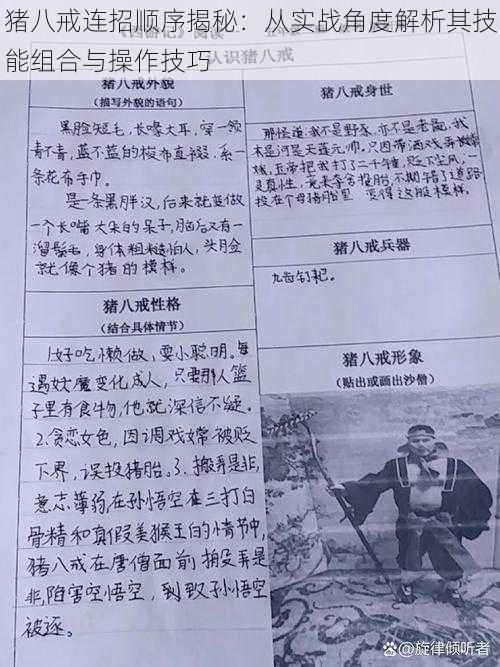 猪八戒连招顺序揭秘：从实战角度解析其技
能组合与操作技巧
《西游记》阅读
认识猪八戒
猪八戒外貌
（描写外貌的语句）
黑脸短毛，长喙大耳，穿一领
青不青，蓝不蓝的梭布直裰，系一
条花布手巾。
是一条黑胖汉，后来就变做
一个长嘴大朵的呆子，脑后又有一
溜鬃毛，身体粗糙怕人，头脸
就像个猪的模样。
猪八戒身世
那怪道：我不是野豕，亦不是老彘，我
本是河是天蓬元帅，只因带酒戏弄嫦
娥，玉帝把我打了二千锤，贬下尘凡，一
灵真性，竟来夺舍投胎，不期错了道路
投在个母猪胎里 变得这般模样。
猪八戒兵器
九齿钉耙。
猪八戒性格
（结合具体情节）
1.好吃懒做，耍小聪明。每
遇妖魔变化成人，只要那人篮
子里有食物，他就深信不疑。
2.贪恋女色，因调戏嫦被贬
下界，误投猪胎。3.搬弄是非，
意志薄弱，在孙悟空在三打白
骨精和真假美猴王的情节中，
猪八戒在唐僧面前搬弄是
非，陷害空悟空，到致孙悟空
被逐。
猪八戒形象
（贴出或画出沙僧）
@旋律倾听者